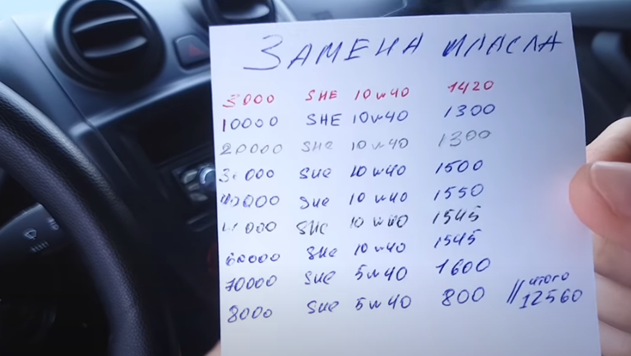 ЗАМЕНА МАСЛА
3000 SHE 10w40 1420
10000 SHE 10w40 1300
20000 SHE 10w40 1300
3.000 SHE 10w40 1500
40000 SHE 10w40 1550
000 SHE 10w40 1545
60000 SHE 10w40 1545
70000 SHE 5w40 1600
8000 SHE 5w40 800 // итого 12560